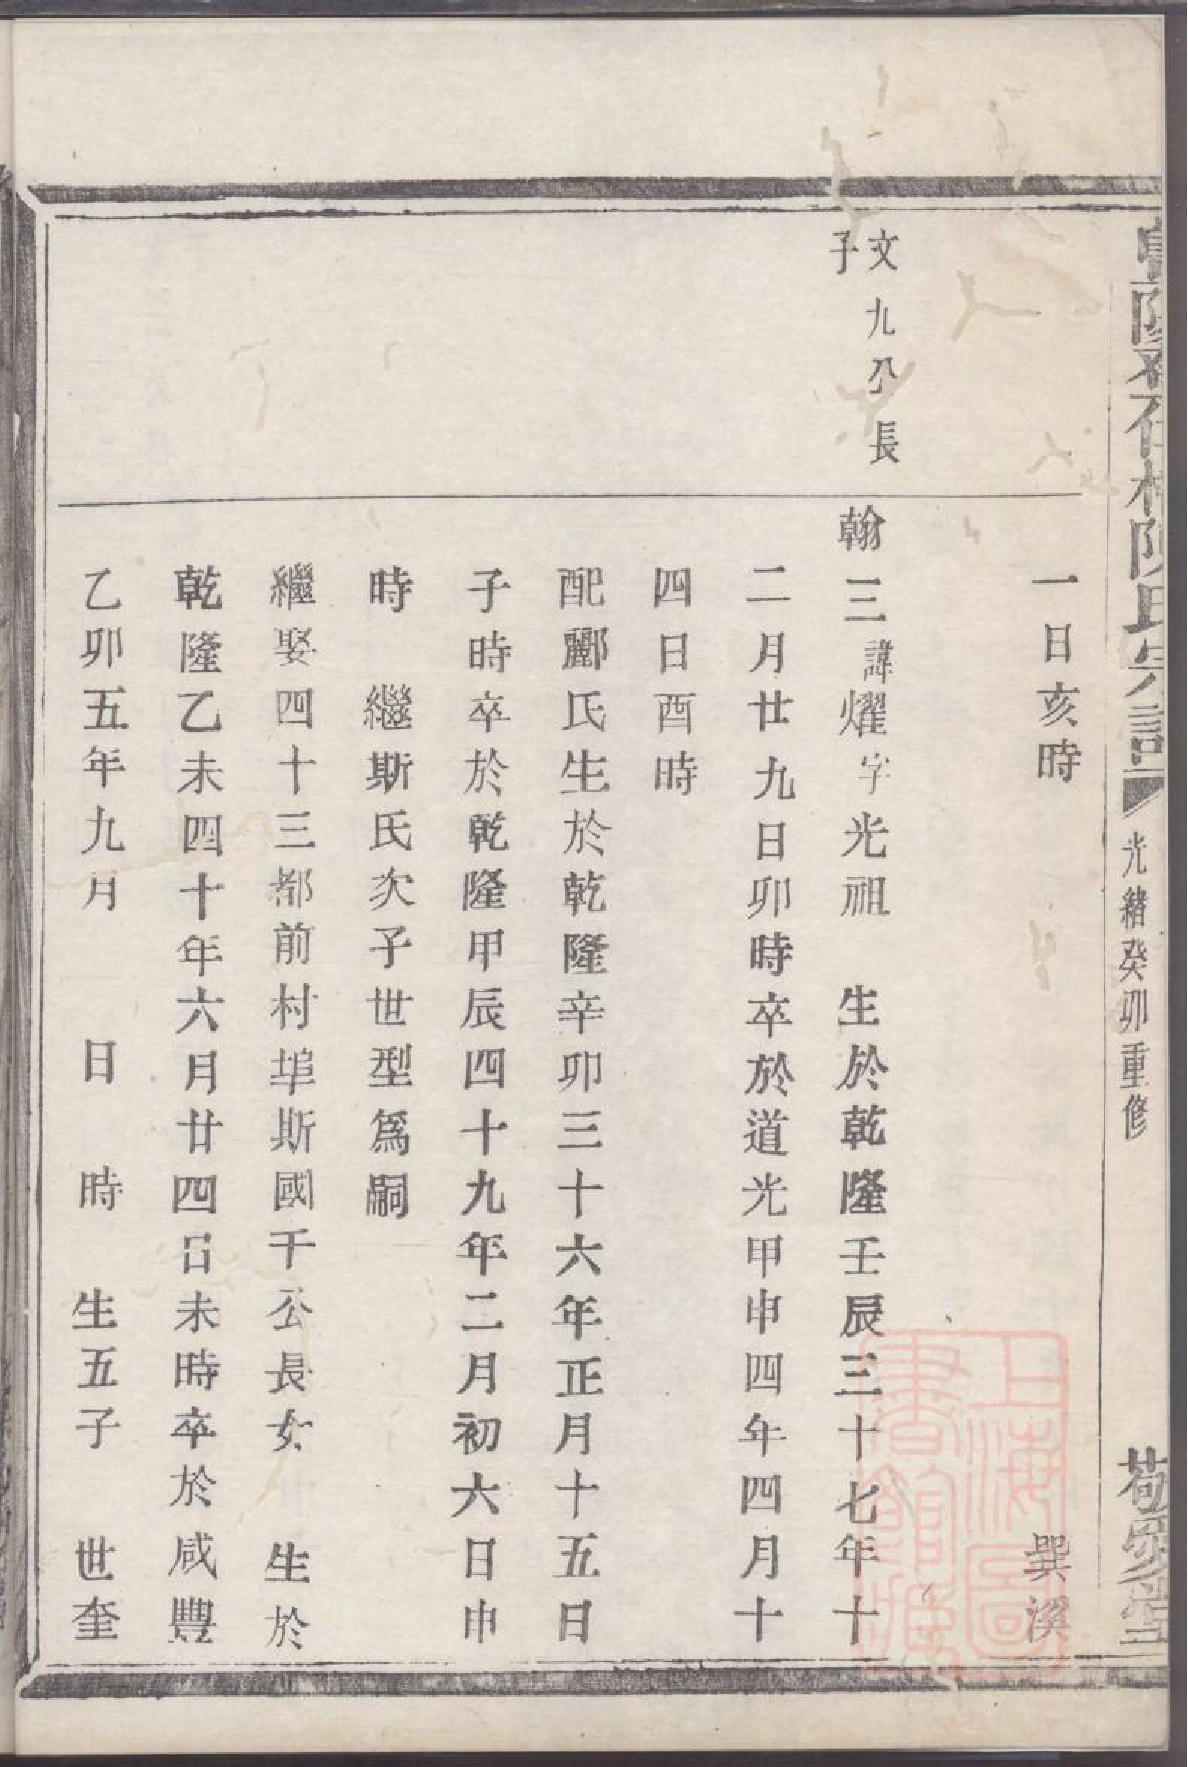 陳氏宗譜
光緒癸卯重修
敬愛堂
一日亥時 巽溪
文九公長
子
翰三諱燿字光祖 生於乾隆壬辰三十七年十
二月廿九日卯時卒於道光甲申四年四月十
四日酉時
配酈氏生於乾隆辛卯三十六年正月十五日
子時卒於乾隆甲辰四十九年二月初六日申
時 繼斯氏次子世型爲嗣
繼娶四十三都前村埠斯國千公長女 生於
乾隆乙未四十年六月廿四日未時卒於咸豐
乙卯五年九月 日 時 生五子 世奎
上海圖
書館藏